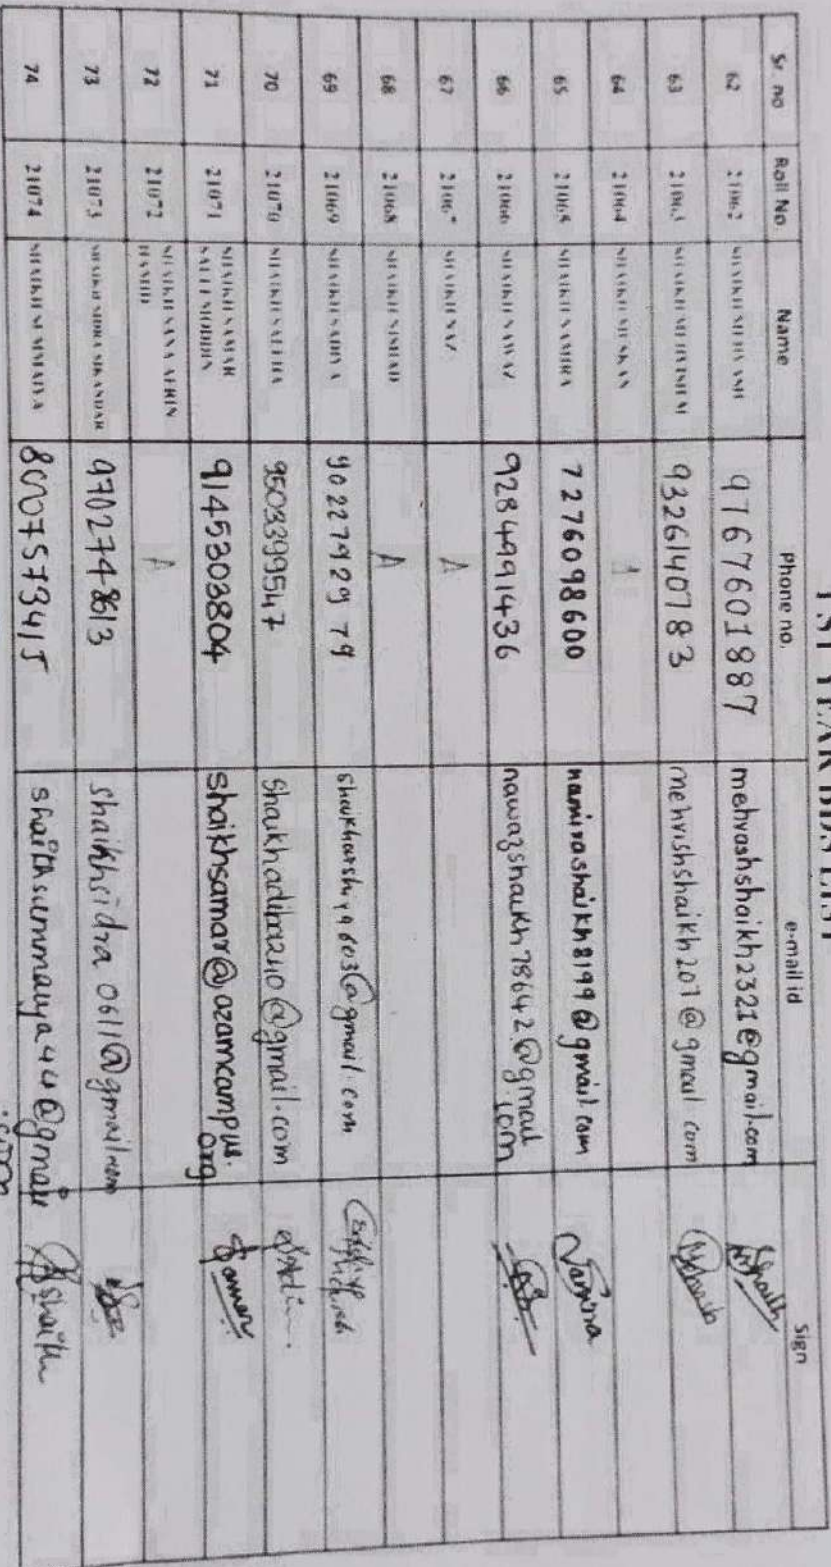 1ST YEAR BDS LIST
Sr. no Roll No. Name Phone no. e-mail id Sign
62 21062 SHAIKH MEHVASH 9767601887 mehvashshaikh2321@gmail.com Shaikh
63 21063 SHAIKH 9326140783 mehvishshaikh207@gmail.com
64 21064 SHAIKH MUSKAN A
65 21065 SHAIKH NAMIRA 7276098600 namirashaikh8199@gmail.com Namira
66 21066 SHAIKH NAWAZ 9284991436 nawazshaikh78642@gmail.com
67 21067 SHAIKH NAZ A
68 21068 SHAIKH A
69 21069 SHAIKH SADIYA 9022792979 @gmail.com
70 21070 SHAIKH 9503399547 @gmail.com
71 21071 SHAIKH SAMAR SALEEMODDIN 9145303804 shaikhsamar@azamcampus.org Samar
72 21072 SHAIKH SANA AFRIN HAMID A
73 21073 SHAIKH SIDRA SIKANDAR shaikhsidra0611@gmail.com
74 21074 SHAIKH SUMMAIYA shaikhsummaiya44@gmail.com Shaikh